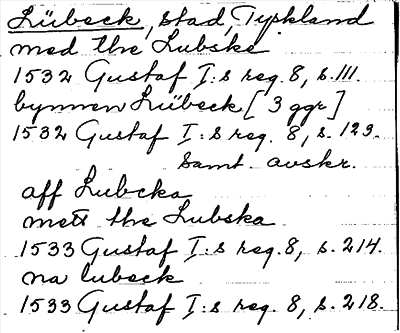 Lübeck, stad, Tyskland
med the Lubske
1532 Gustaf I:s reg. 8, s. 111.
bynnen Lüibeck [3 ggr]
1532 Gustaf I:s reg. 8, s. 123.
samt. avskr.
aff Lubcka
mett the Lubska
1533 Gustaf I:s reg. 8, s. 214.
na lubeck
1533 Gustaf I:s reg. 8, s. 218.